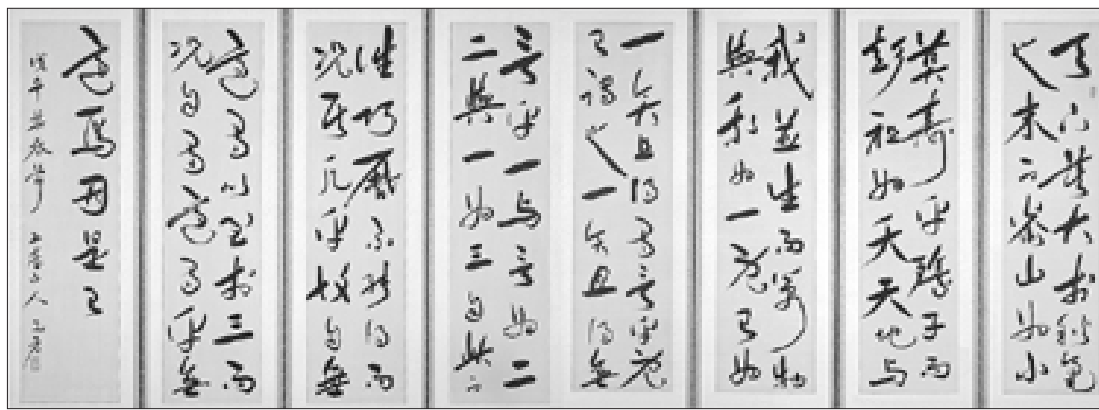 天下莫大於秋毫
之末而泰山為小
莫壽乎殤子而
彭祖為夭天地与
我並生而萬物
與我為一既已為
一矣且得有言乎既
已謂之一矣且得無
言乎一与言為二
二與一為三自此以
往巧歷不能得而
況其凡乎故自無
適有以至於三而
況自有適有乎無
適焉因是已
戊午